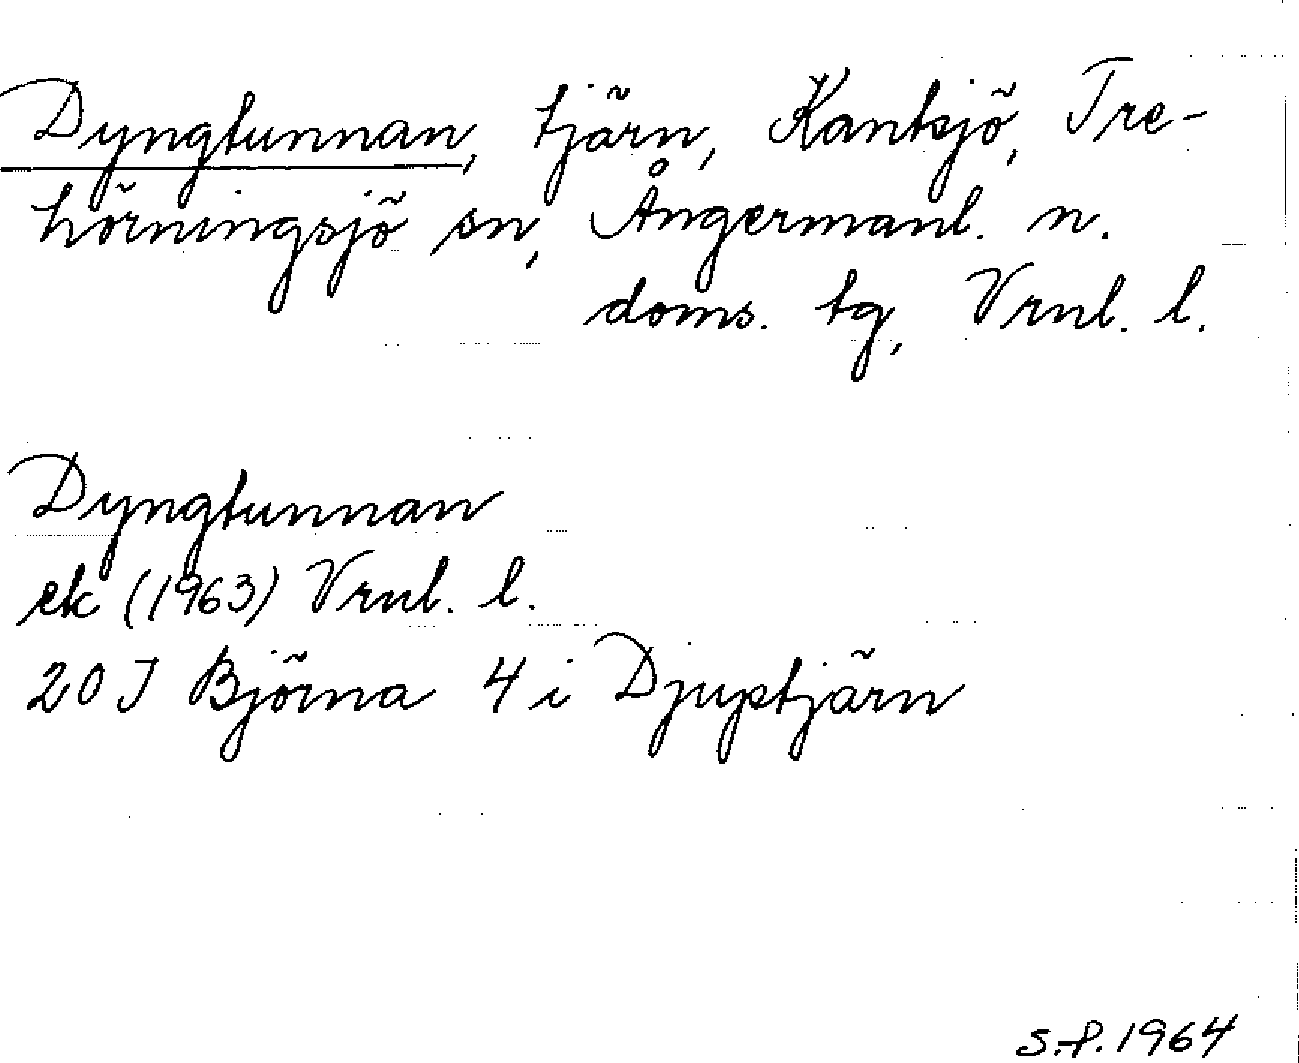 Dyngtunnan, tjärn, Kantsjö, Tre-
hörningsjö sn, Ångermanl. n.
doms. tg, Vrnl. l.
Dyngtunnan
ek (1963) Vrnl. l.
20 I Björna 4 i Djuptjärn
S.-P. 1964